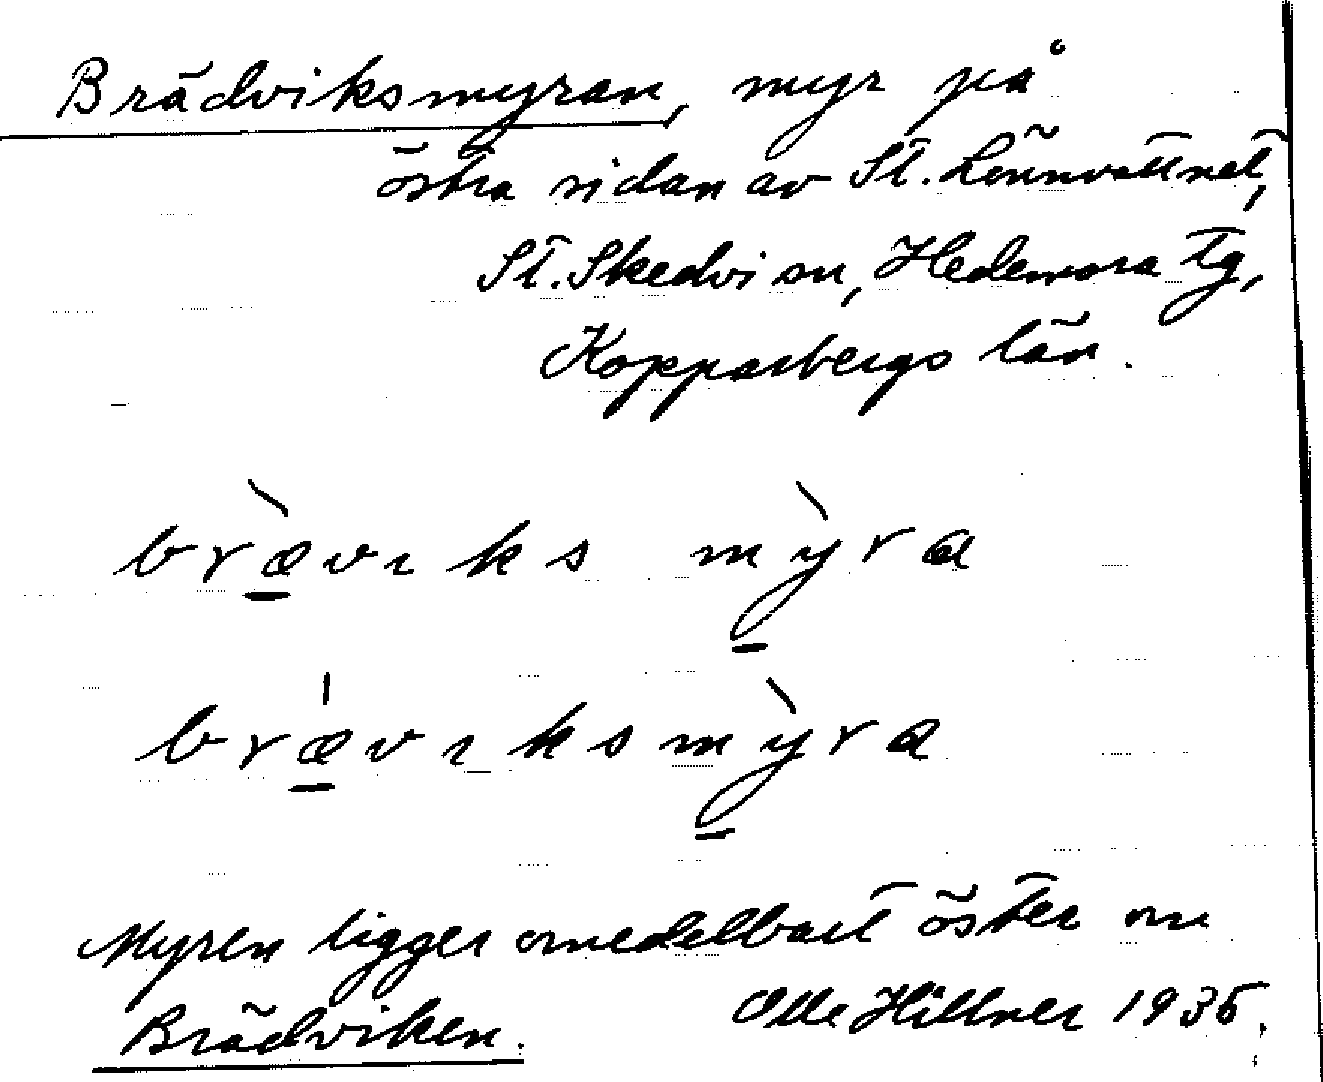 Brädviksmyran, myr på
östra sidan av St. Lönnvattnet,
St. Skedvi sn, Hedemora tg,
Kopparbergs län.
bræ̀vıks mỳra
brǽvıksmỳra
Myren ligger omedelbart öster om
Brädviken. Olle Hillner 1935.